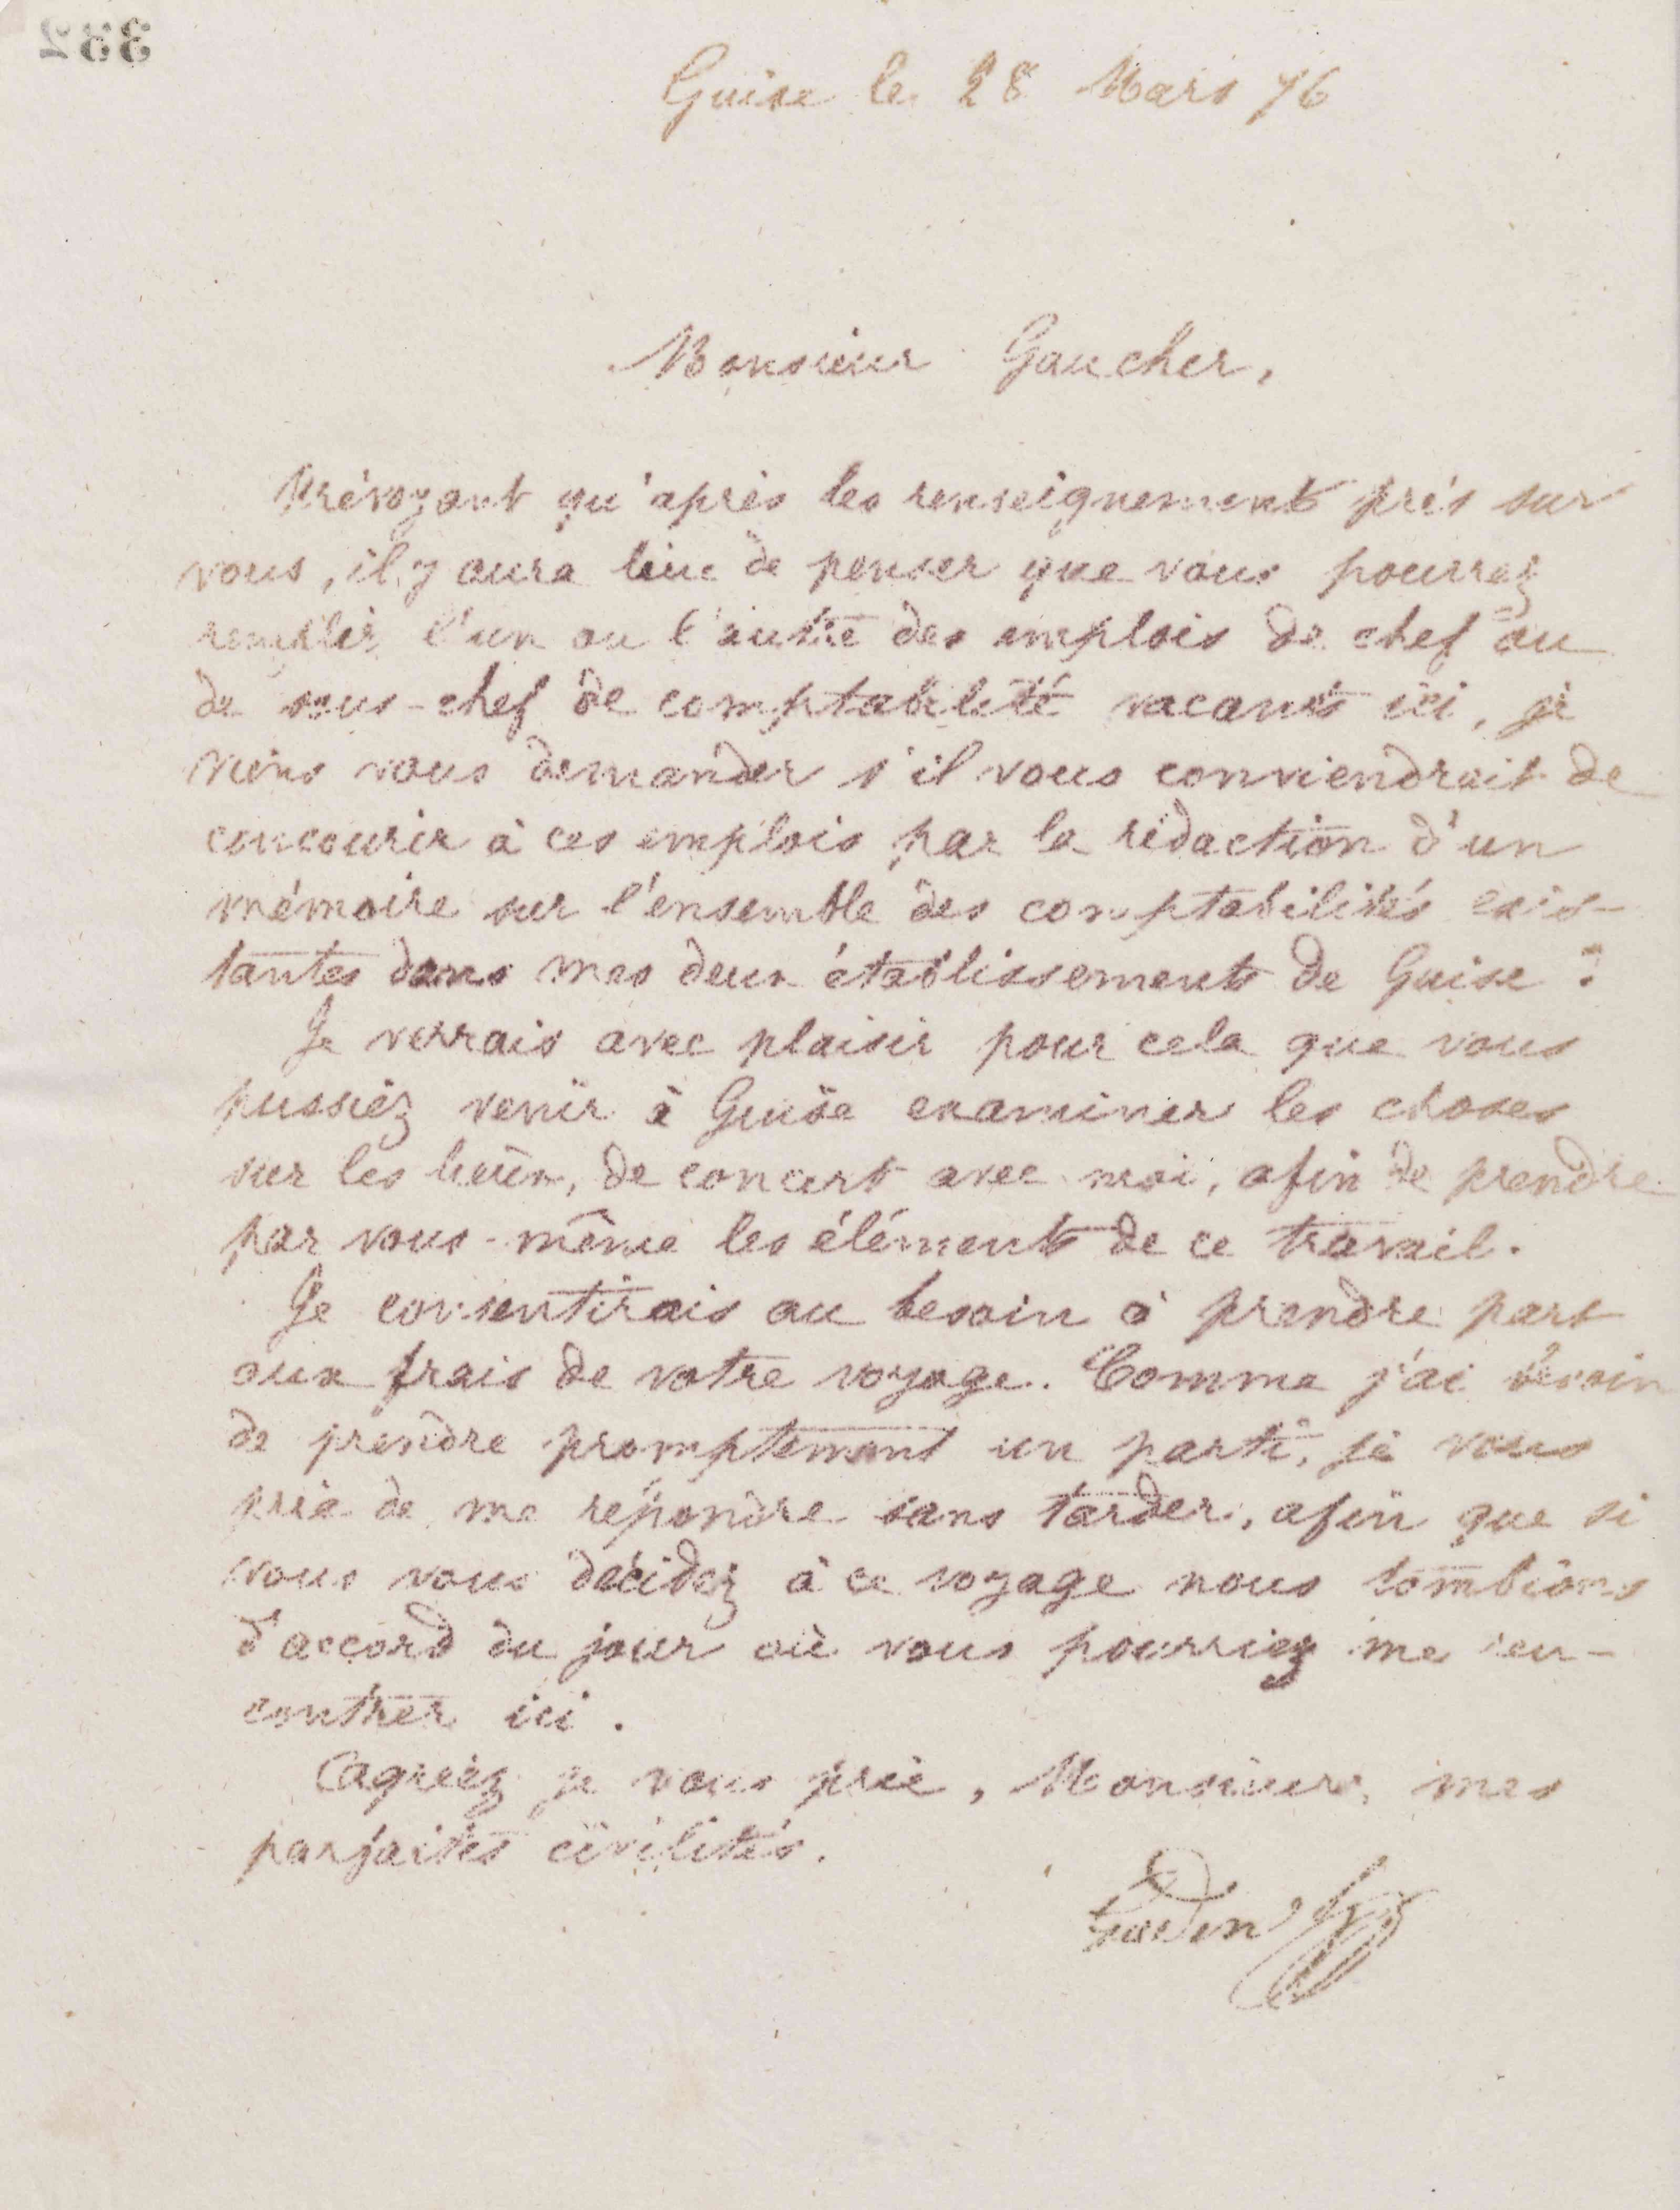 332
Guise le 28 Mars 76
Monsieur Gaucher,
Prévoyant qu'après les renseignements pris sur
vous, il y aura lieu de penser que vous pourrez
remplir l'un ou l'autre des emplois de chef ou
de sous-chef de comptabilité vacants ici, je
viens vous demander s'il vous conviendrait de
concourir à ces emplois par la rédaction d'un
mémoire sur l'ensemble des comptabilités exis-
tantes dans mes deux établissements de Guise ?
Je verrais avec plaisir pour cela que vous
pussiez venir à Guise examiner les choses
sur les lieux, de concert avec moi, afin de prendre
par vous-même les éléments de ce travail.
Je consentirais au besoin à prendre part
aux frais de votre voyage. Comme j'ai besoin
de prendre promptement un parti, je vous
prie de me répondre sans tarder, afin que si
vous vous décidez à ce voyage nous tombions
d'accord du jour où vous pourriez me ren-
contrer ici.
Agréez je vous prie, Monsieur, mes
parfaites civilités.
Godin